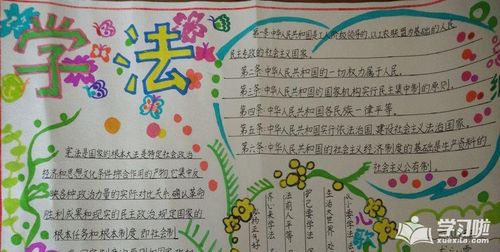 学法
宪法是国家的根本大法是特定社会政治
经济和思想文化条件综合作用的产物它集中反
映各种政治力量的实际对比关系确认革命
胜利成果和现实的民主政治,规定国家的
根本任务和根本制度,即社会制
第一条 中华人民共和国是工人阶级领导的,以工农联盟为基础的人民
民主专政的社会主义国家。
第二条 中华人民共和国的一切权力属于人民。
第三条 中华人民共和国的国家机构实行民主集中制的原则。
第四条 中华人民共和国各民族一律平等。
第五条 中华人民共和国实行依法治国,建设社会主义法治国家。
第六条 中华人民共和国的社会主义经济制度的基础是生产资料的
社会主义公有制。
学习啦
xuexila.com